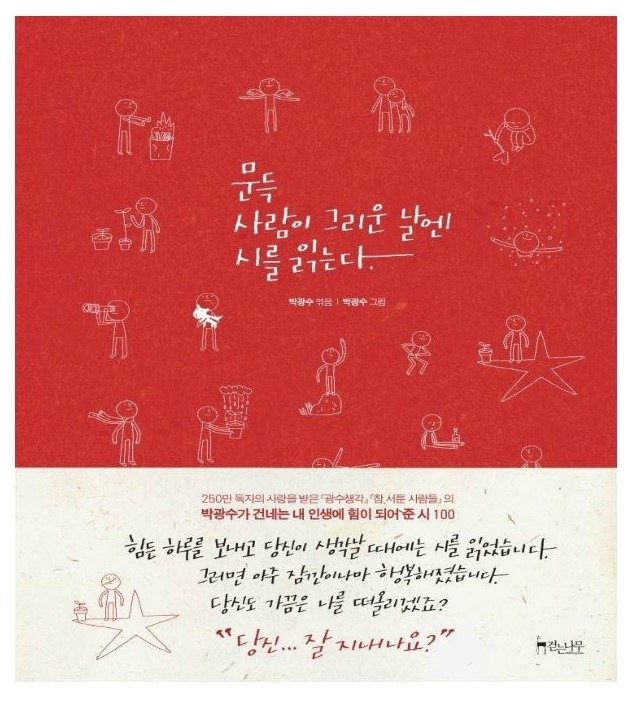 문득
사람이 그리운 날엔
시를 읽는다.
박광수 엮음 | 박광수 그림
250만 독자의 사랑을 받은 「광수생각」 「참 서툰 사람들」의
박광수가 건네는 내 인생에 힘이 되어 준 시 100
힘든 하루를 보내고 당신이 생각날 때에는 시를 읽었습니다.
그러면 아주 잠깐이나마 행복해졌습니다.
당신도 가끔은 나를 떠올리겠죠?
“당신... 잘 지내나요?”
걷는나무